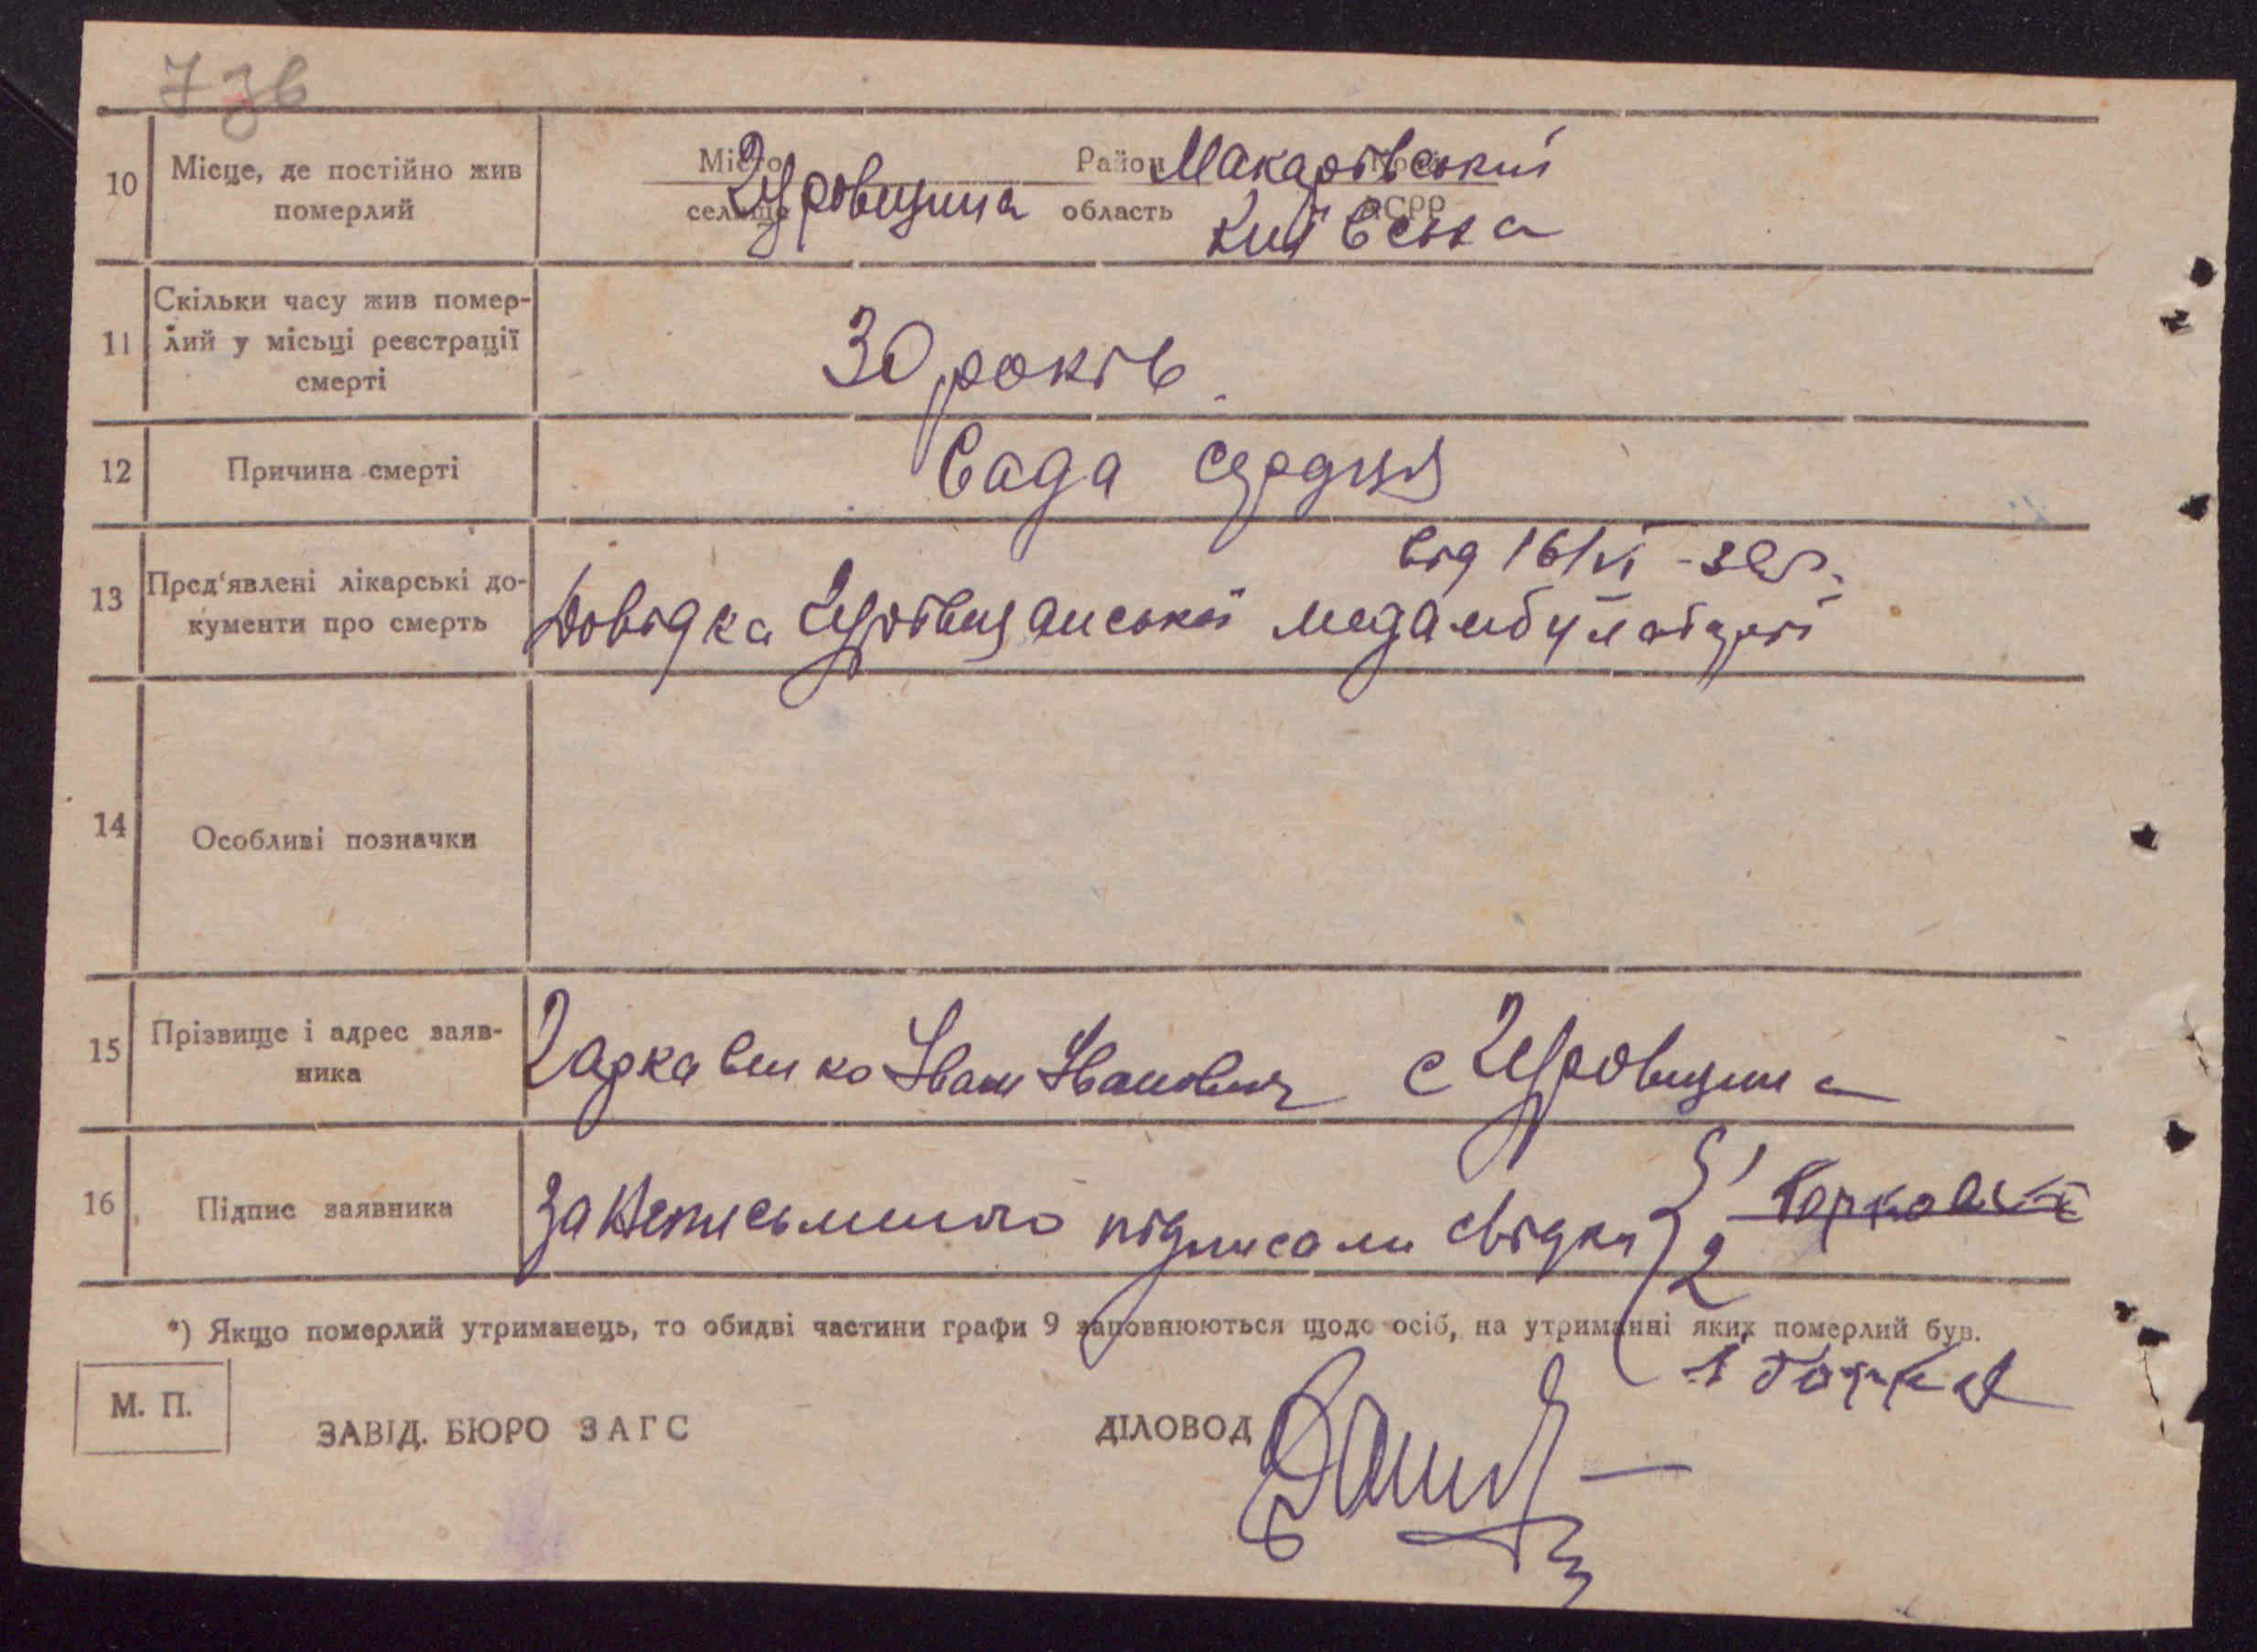 7 зв
10 Місце, де постійно жив померлий
Місто Район Макарівський
селище область АСРР
Київська
11 Скільки часу жив помер-
лий у місьці реєстрації
смерті
30 років.
12 Причина смерті
Вада сердця
13 Пред'явлені лікарські до-
кументи про смерть
від 16/VI -38р.
Довідка медамбулаторії
14 Особливі позначки
15 Прізвище і адрес заяв-
ника
Гаркавенко Іван Іванович с
16 Підпис заявника
За неписьменого підписали свідки 1
2
*) Якщо померлий утриманець, то обидві частини графи 9 заповнюються щодо осіб, на утриманні яких померлий був.
М. П.
ЗАВІД. БЮРО ЗАГС
ДІЛОВОД